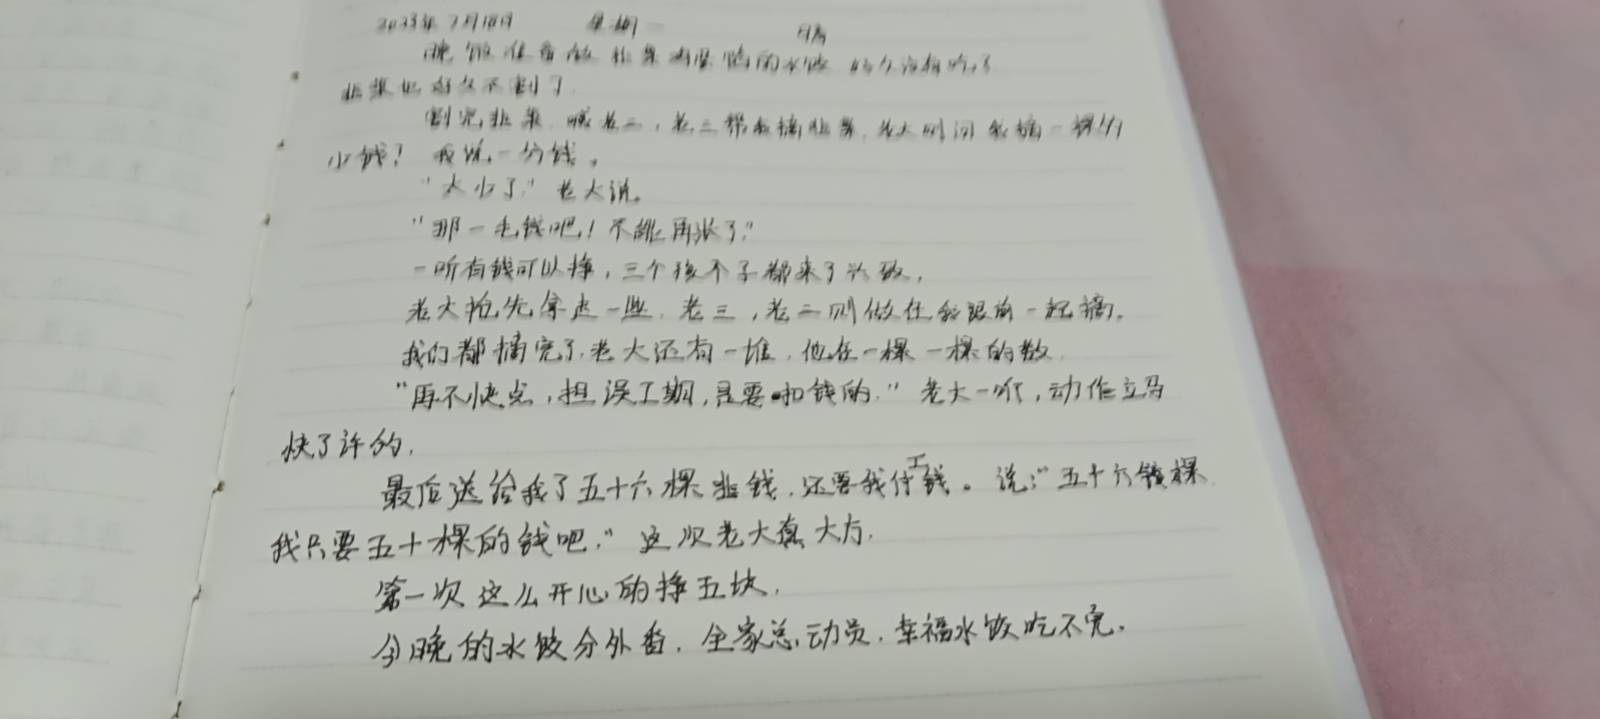 2023年7月18日 星期一 晴
晚饭准备做韭菜鸡蛋馅的水饺 好久没有吃了
韭菜也好久不割了
割完韭菜 喊老二,老三帮我摘韭菜,老大则问我摘一棵多
少钱?我说一分钱。
"太少了"老大说。
"那一毛钱吧!不能再涨了"
一听有钱可以挣,三个孩不子都来了兴致,
老大抢先拿走一些.老三,老二则做在我跟前一起摘。
我们都摘完了,老大还有一堆,他在一棵一棵的数
"再不快点,担误工期,是要扣钱的."老大一听,动作立马
快了许多,
最后送给我了五十六棵韭钱,还要我付工钱。说:"五十六钱棵
我只要五十棵的钱吧."这次老大真大方.
第一次这么开心的挣五块.
今晚的水饺分外香.全家总动员.幸福水饺吃不完.